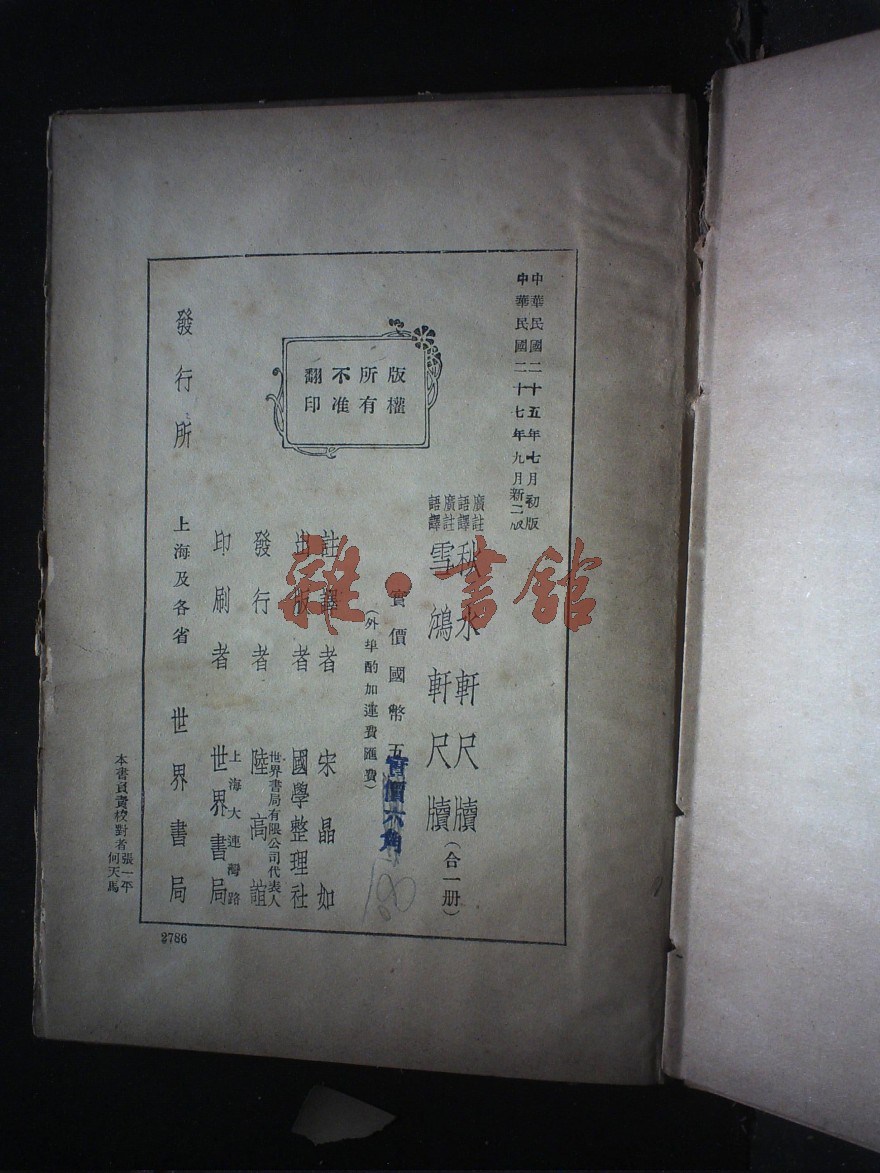 中華民國二十五年七月初版
中華民國二十七年九月新二版
版權
所有
不准
翻印
廣註
語譯
秋水軒尺牘
廣註
語譯
雪鴻軒尺牘
(合一册)
實價國幣五
實價六角
(外埠酌加運費匯費)
註譯者 宋晶如
出版者 國學整理社
發行者 世界書局有限公司代表人
陸高誼
印刷者 上海大連灣路
世界書局
發行所 上海及各省 世界書局
本書負責校對者 張一平
何天馬
2786
180
雜·書館